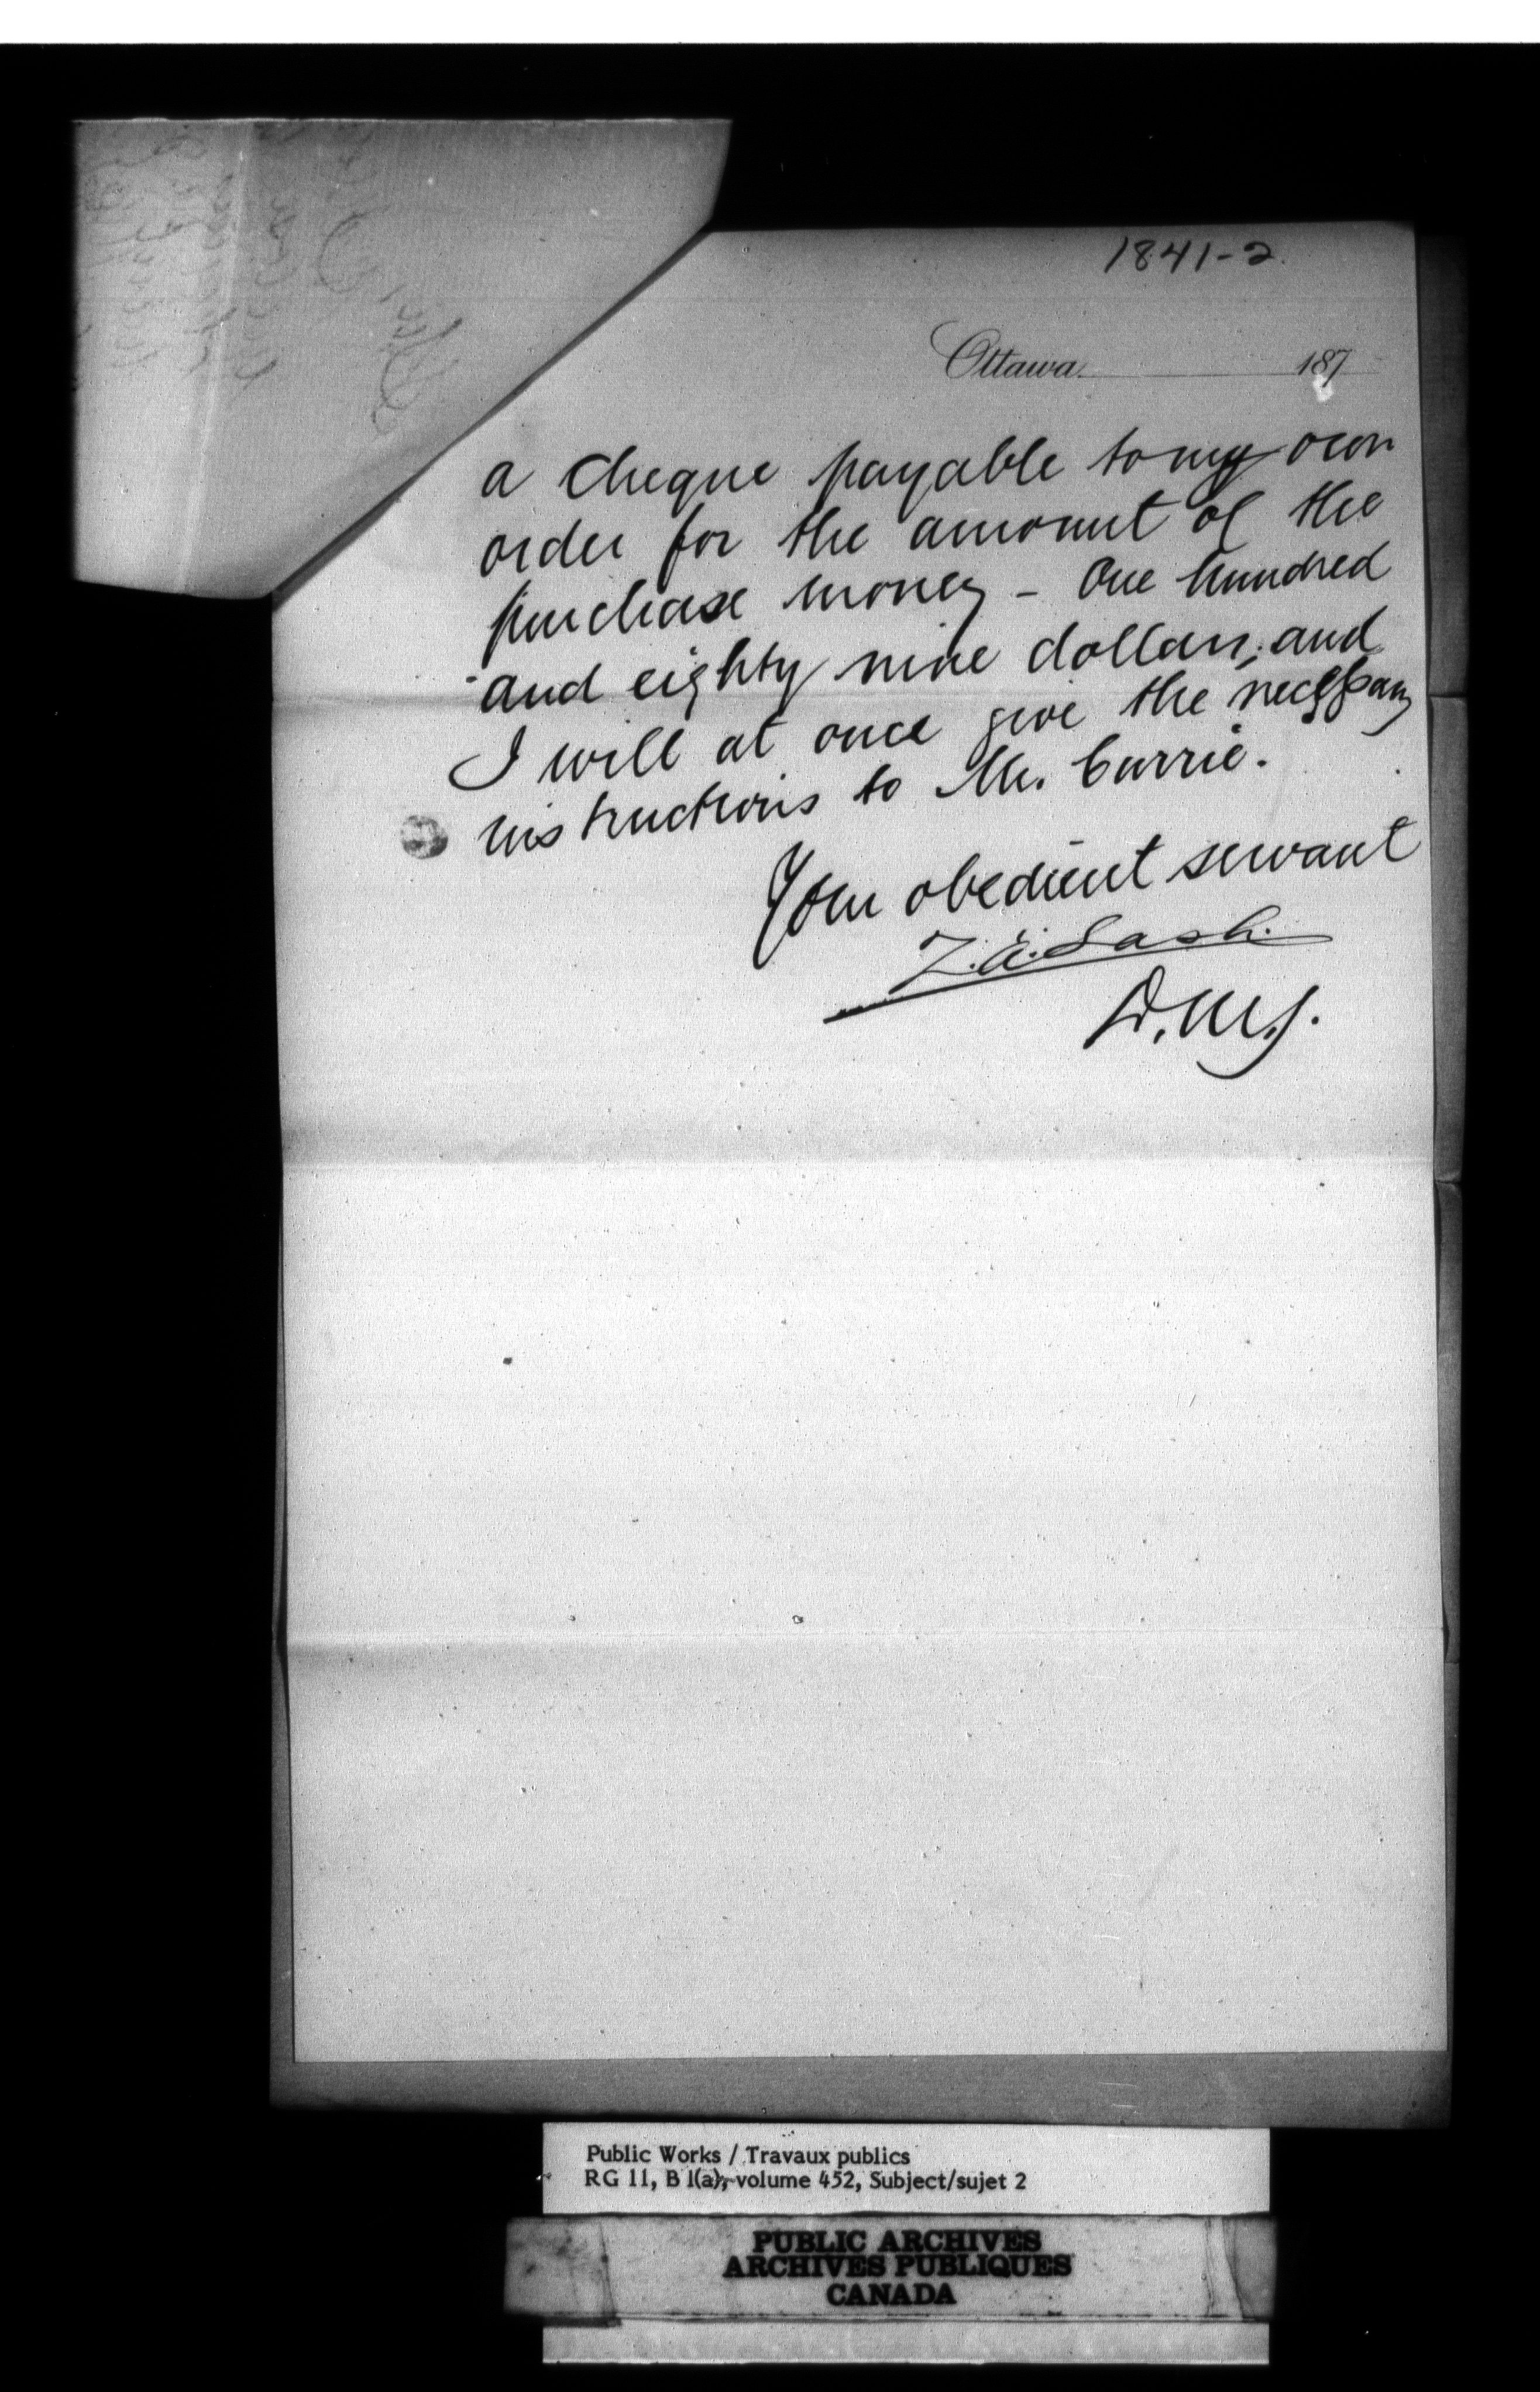 1841-2
Ottawa 187
a cheque payable to my own
order for the amount of the
purchase money – One hundred
and eighty nine dollars; and
I will at once give the necessary
instructions to Mr. Currie.
Your obedient servant
Z. A. Lash.
D.M.J.
Public Works / Travaux publics
RG 11, B 1(a), volume 452, Subject/sujet 2
PUBLIC ARCHIVES
ARCHIVES PUBLIQUES
CANADA